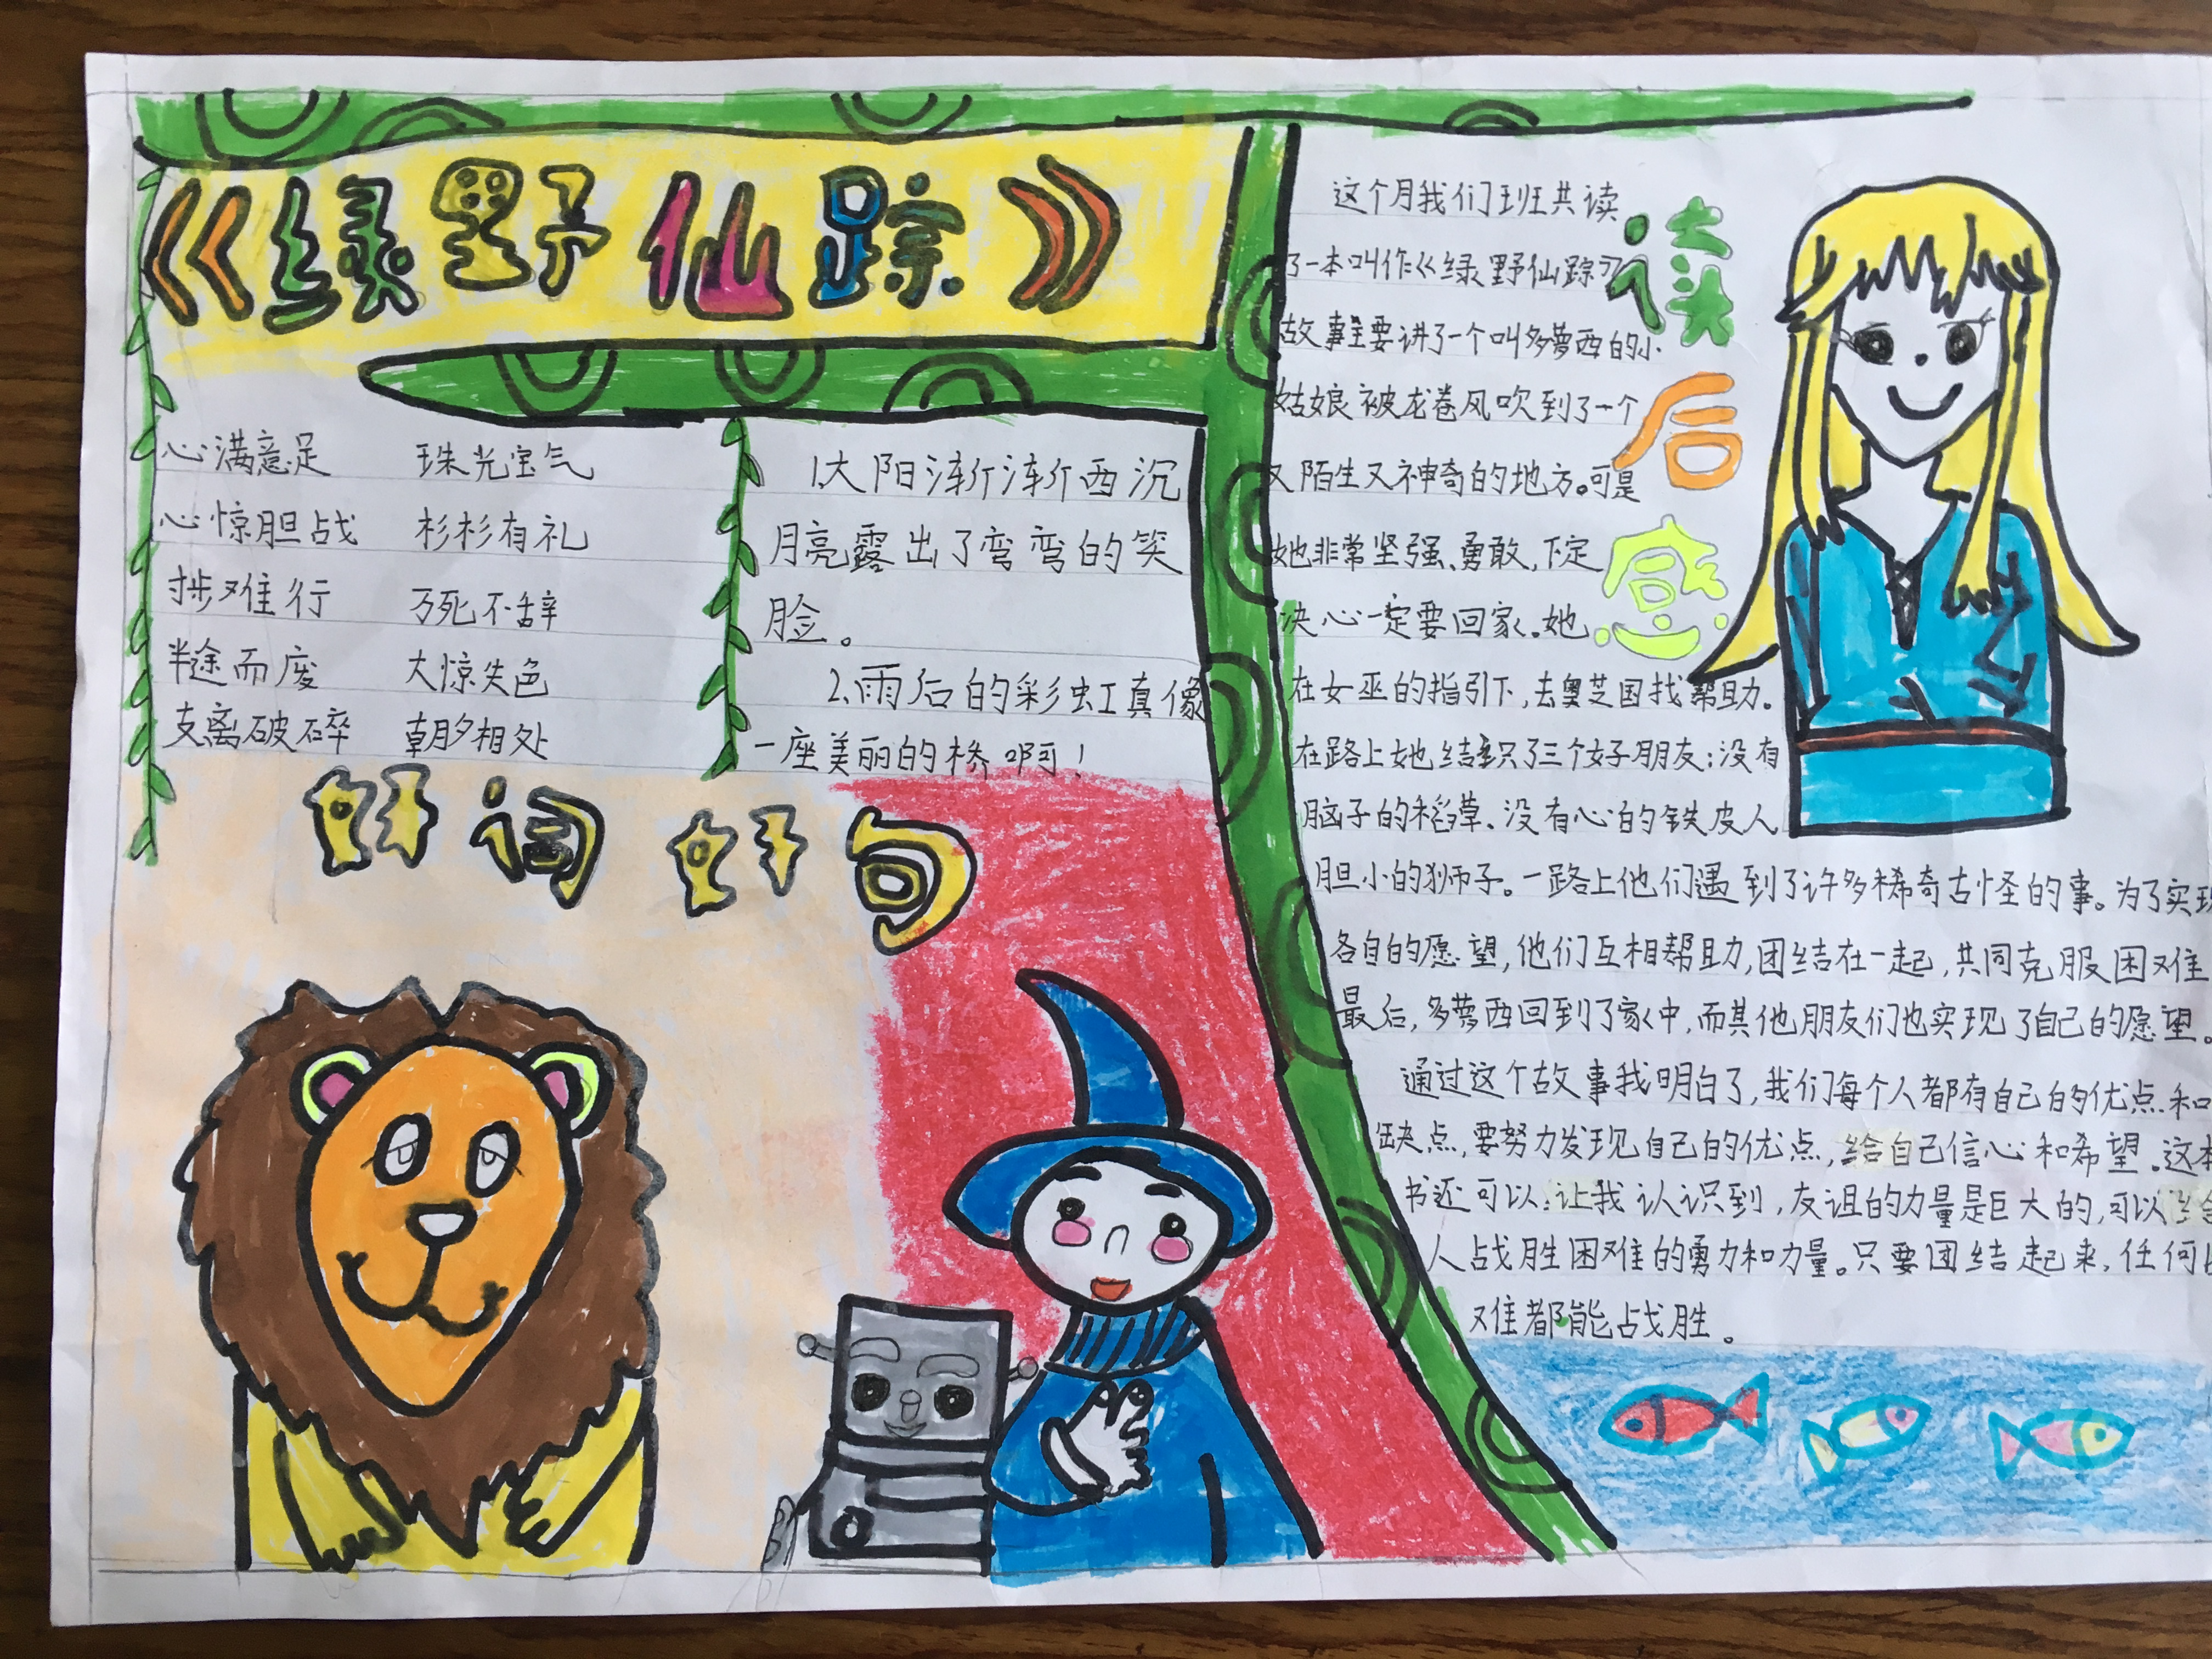 《绿野仙踪》
心满意足 珠光宝气
心惊胆战 杉杉有礼
步难行 万死不辞
半途而废 大惊失色
支离破碎 朝夕相处
1.太阳渐渐西沉
月亮露出了弯弯的笑
脸。
2.雨后的彩虹真像
一座美丽的桥啊!
好词好句
读后感
这个月我们班共读
了一本叫作《绿野仙踪》
故事主要讲了一个叫多萝西的小
姑娘被龙卷风吹到了一个
又陌生又神奇的地方。可是
她非常坚强、勇敢,下定
决心一定要回家。她
在女巫的指引下,去奥芝国找帮助。
在路上她结织了三个好子朋友:没有
脑子的稻草、没有心的铁皮人
胆小的狮子。一路上他们遇到了许多稀奇古怪的事。为了实现
各自的愿望,他们互相帮助,团结在一起,共同克服困难
最后,多萝西回到了家中,而其他朋友们也实现了自己的愿望。
通过这个故事我明白了,我们每个人都有自己的优点和
缺点,要努力发现自己的优点,给自己信心和希望。这本
书还可以:让我认识到,友谊的力量是巨大的,可以给
人战胜困难的勇力和力量。只要团结起来,任何
难都能战胜。